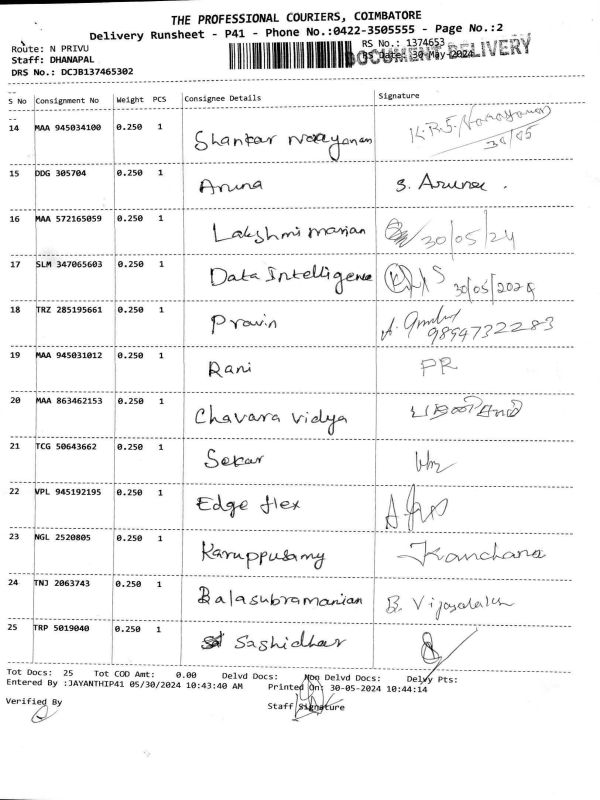 THE PROFESSIONAL COURIERS, COIMBATORE
Delivery Runsheet - P41 - Phone No.:0422-3505555 - Page No.:2
Route: N PRIVU
Staff: DHANAPAL
DRS No.: DCJB137465302
RS No.: 1374653
RS Date: 30-May-2024
DOCUMENT DELIVERY
S No Consignment No Weight PCS Consignee Details Signature
14 MAA 945034100 0.250 1 Shankar Narayanan K.R.S. Narayanan
30/05
15 DDG 305704 0.250 1 Aruna S. Aruna.
16 MAA 572165059 0.250 1 Lakshmi manian 30/05/24
17 SLM 347065603 0.250 1 Data Intelligence 30/05/2024
18 TRZ 285195661 0.250 1 Pravin
9894732283
19 MAA 945031012 0.250 1 Rani PR
20 MAA 863462153 0.250 1 Chavara Vidya
21 TCG 50643662 0.250 1 Sekar
22 VPL 945192195 0.250 1 Edge flex
23 NGL 2520805 0.250 1 Karuppusamy Kanchana
24 TNJ 2063743 0.250 1 Balasubramanian B. Vijayalakshmi
25 TRP 5019040 0.250 1 Sashidhar
Tot Docs: 25 Tot COD Amt: 0.00 Delvd Docs: Non Delvd Docs: Delvy Pts:
Entered By :JAYANTHIP41 05/30/2024 10:43:40 AM Printed On: 30-05-2024 10:44:14
Verified By Staff Signature